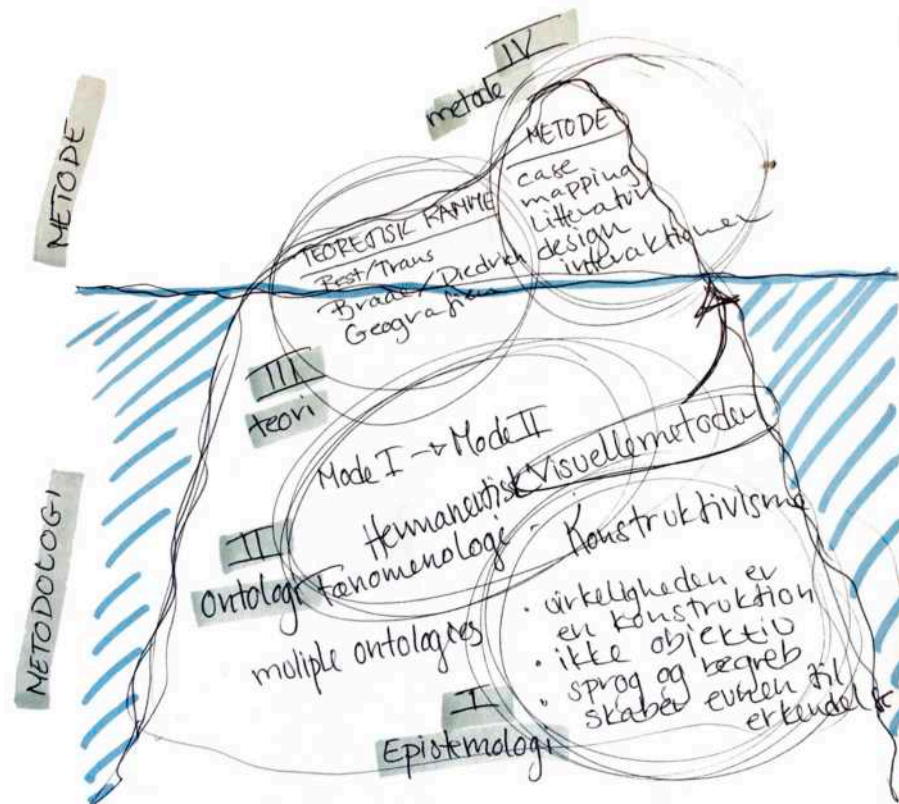 METODE
METODOLOGI
IV
metode
METODE
case
mapping
Litteratur
design
interaktioner
TEORETISK RAMME
Post/Trans
Braae/Diedrich
Geografien
III
teori
Mode I → Mode II
Visuellemetoder
Hermaneutisk
Fænomenologi
II
Ontologi
multiple ontologies
Konstruktivisme
• virkeligheden er
en konstruktion
• ikke objektiv
• sprog og begreb
skaber evnen til
erkendelse
I
Epistemologi